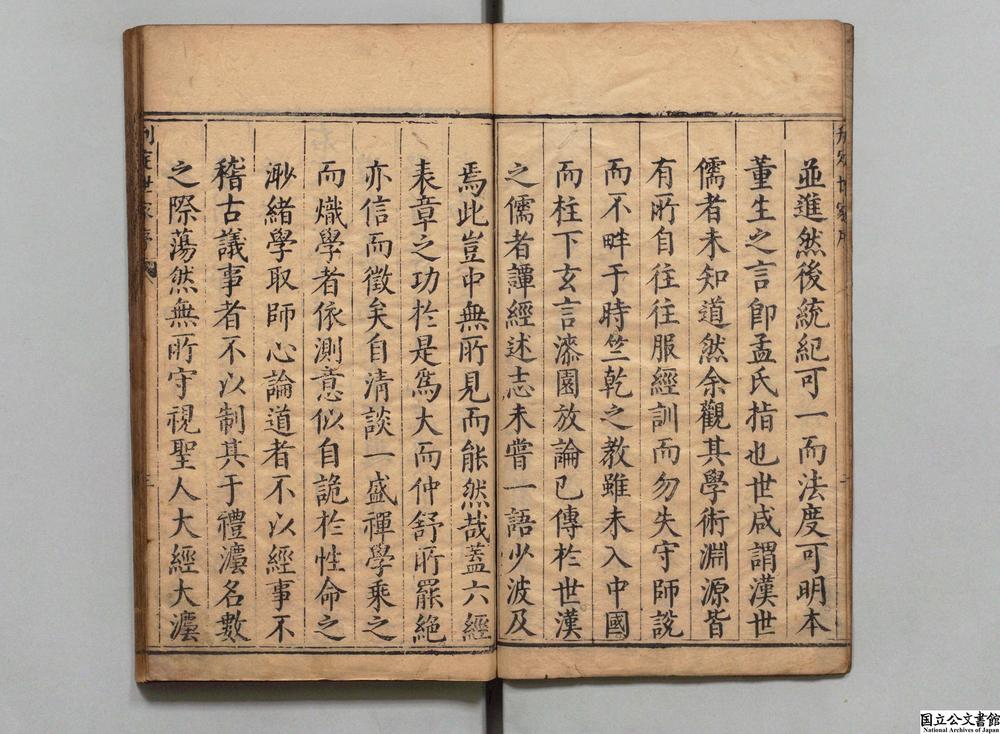 並進然後統紀可一而法度可明本
董生之言即孟氏指也世咸謂漢世
儒者未知道然余觀其學術淵源皆
有所自往往服經訓而勿失守師說
而不畔于時竺乾之教雖未入中國
而柱下玄言漆園放論已傳於世漢
之儒者譚經述志未嘗一語少波及
焉此豈中無所見而能然哉蓋六經
表章之功於是為大而仲舒所罷絕
亦信而徵矣自清談一盛禪學乘之
而熾學者依測意似自詭於性命之
渺緒學取師心論道者不以經事不
稽古議事者不以制其于禮灋名數
之際蕩然無所守視聖人大經大灋
国立公文書館
National Archives of Japan